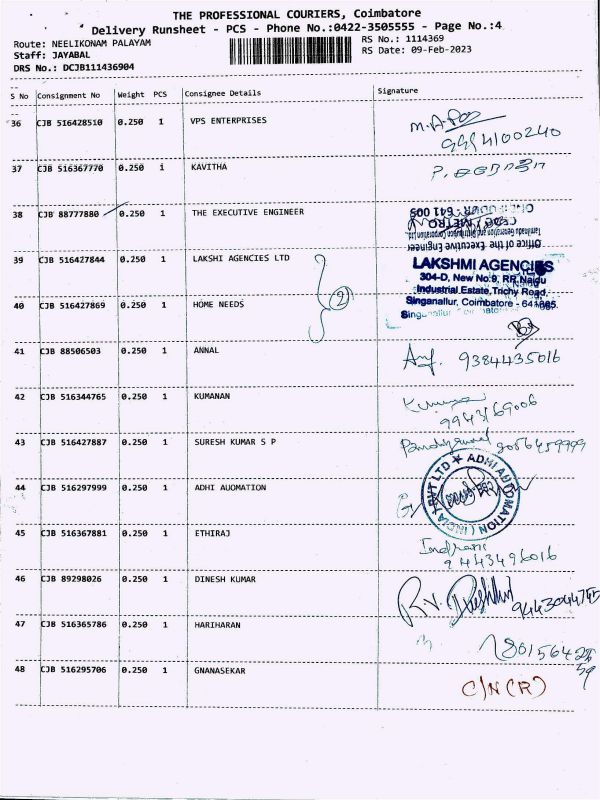 THE PROFESSIONAL COURIERS, Coimbatore
Delivery Runsheet - PCS - Phone No.:0422-3505555 - Page No.:4
Route: NEELIKONAM PALAYAM
RS No.: 1114369
Staff: JAYABAL
RS Date: 09-Feb-2023
DRS No.: DCJB111436904
S No Consignment No Weight PCS Consignee Details Signature
36 CJB 516428510 0.250 1 VPS ENTERPRISES
9994100240
37 CJB 516367770 0.250 1 KAVITHA
38 CJB 88777880 0.250 1 THE EXECUTIVE ENGINEER
Office of the Executive Engineer
39 CJB 516427844 0.250 1 LAKSHI AGENCIES LTD
LAKSHMI AGENCIES
304-D, New No.9, RR Naidu
Industrial Estate, Trichy Road,
40 CJB 516427869 0.250 1 HOME NEEDS
2
Singanallur, Coimbatore - 641005.
41 CJB 88506503 0.250 1 ANNAL
9384435016
42 CJB 516344765 0.250 1 KUMANAN
9943169006
43 CJB 516427887 0.250 1 SURESH KUMAR S P
44 CJB 516297999 0.250 1 ADHI AUOMATION
ADHI AUTOMATION (INDIA) PVT LTD
45 CJB 516367881 0.250 1 ETHIRAJ
Indrani
9443496016
46 CJB 89298026 0.250 1 DINESH KUMAR
47 CJB 516365786 0.250 1 HARIHARAN
48 CJB 516295706 0.250 1 GNANASEKAR
C/N (R)